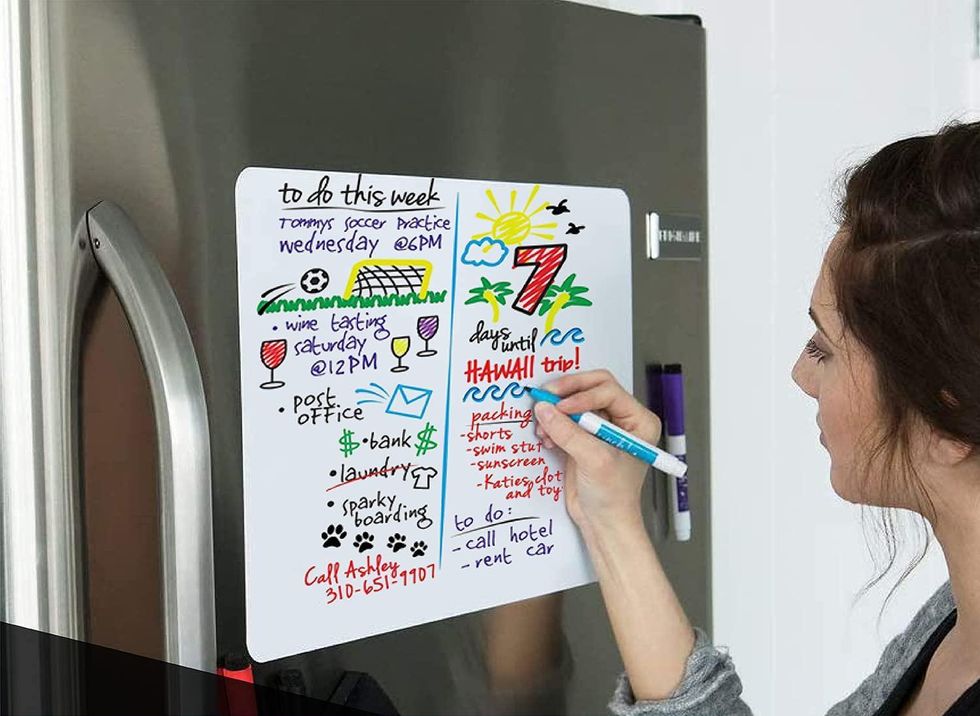 to do this week
Tommys soccer Practice
wednesday @6PM
• wine tasting
saturday
@12PM
• post
office
$ • bank $
• laundry
• sparky
boarding
Call Ashley
310-651-9907
7
days
until
HAWAII trip!
packing
-shorts
-swim stuf
-sunscreen
-Katies clot
and toy
to do:
- call hotel
- rent car
FRIGIDAIRE